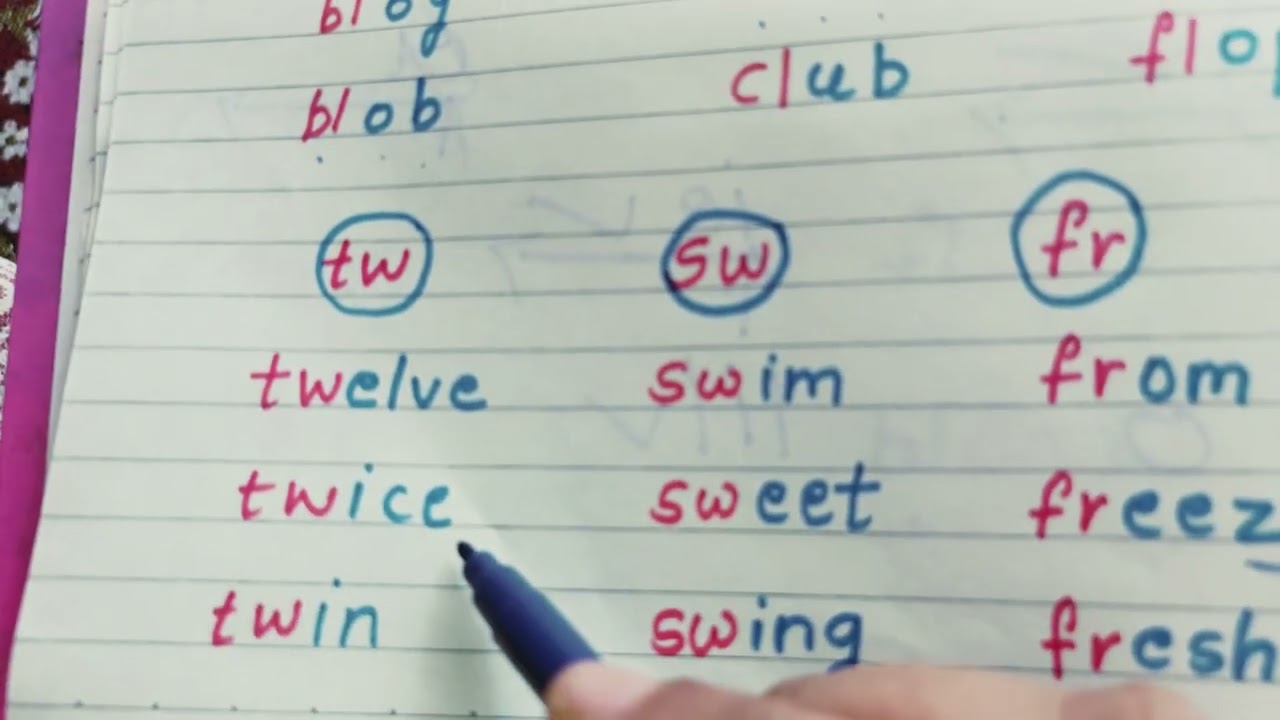 blog
blob club
tw sw fr
twelve swim from
twice sweet
twin swing fresh